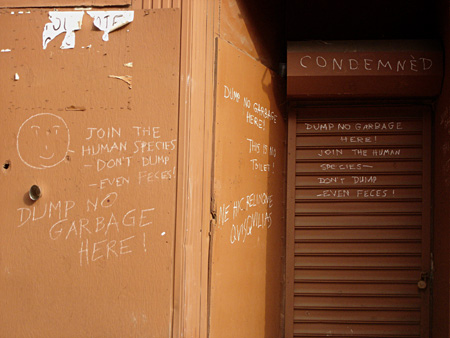 JOIN THE
HUMAN SPECIES
-DON'T DUMP
-EVEN FECES!
DUMP NO
GARBAGE
HERE!
DUMP NO GARBAGE
HERE!
THIS IS NO
TOILET!
NE HIC RELINQUE
QVISQVILIAS
CONDEMNÈD
DUMP NO GARBAGE
HERE!
JOIN THE HUMAN
SPECIES—
DON'T DUMP
-EVEN FECES!